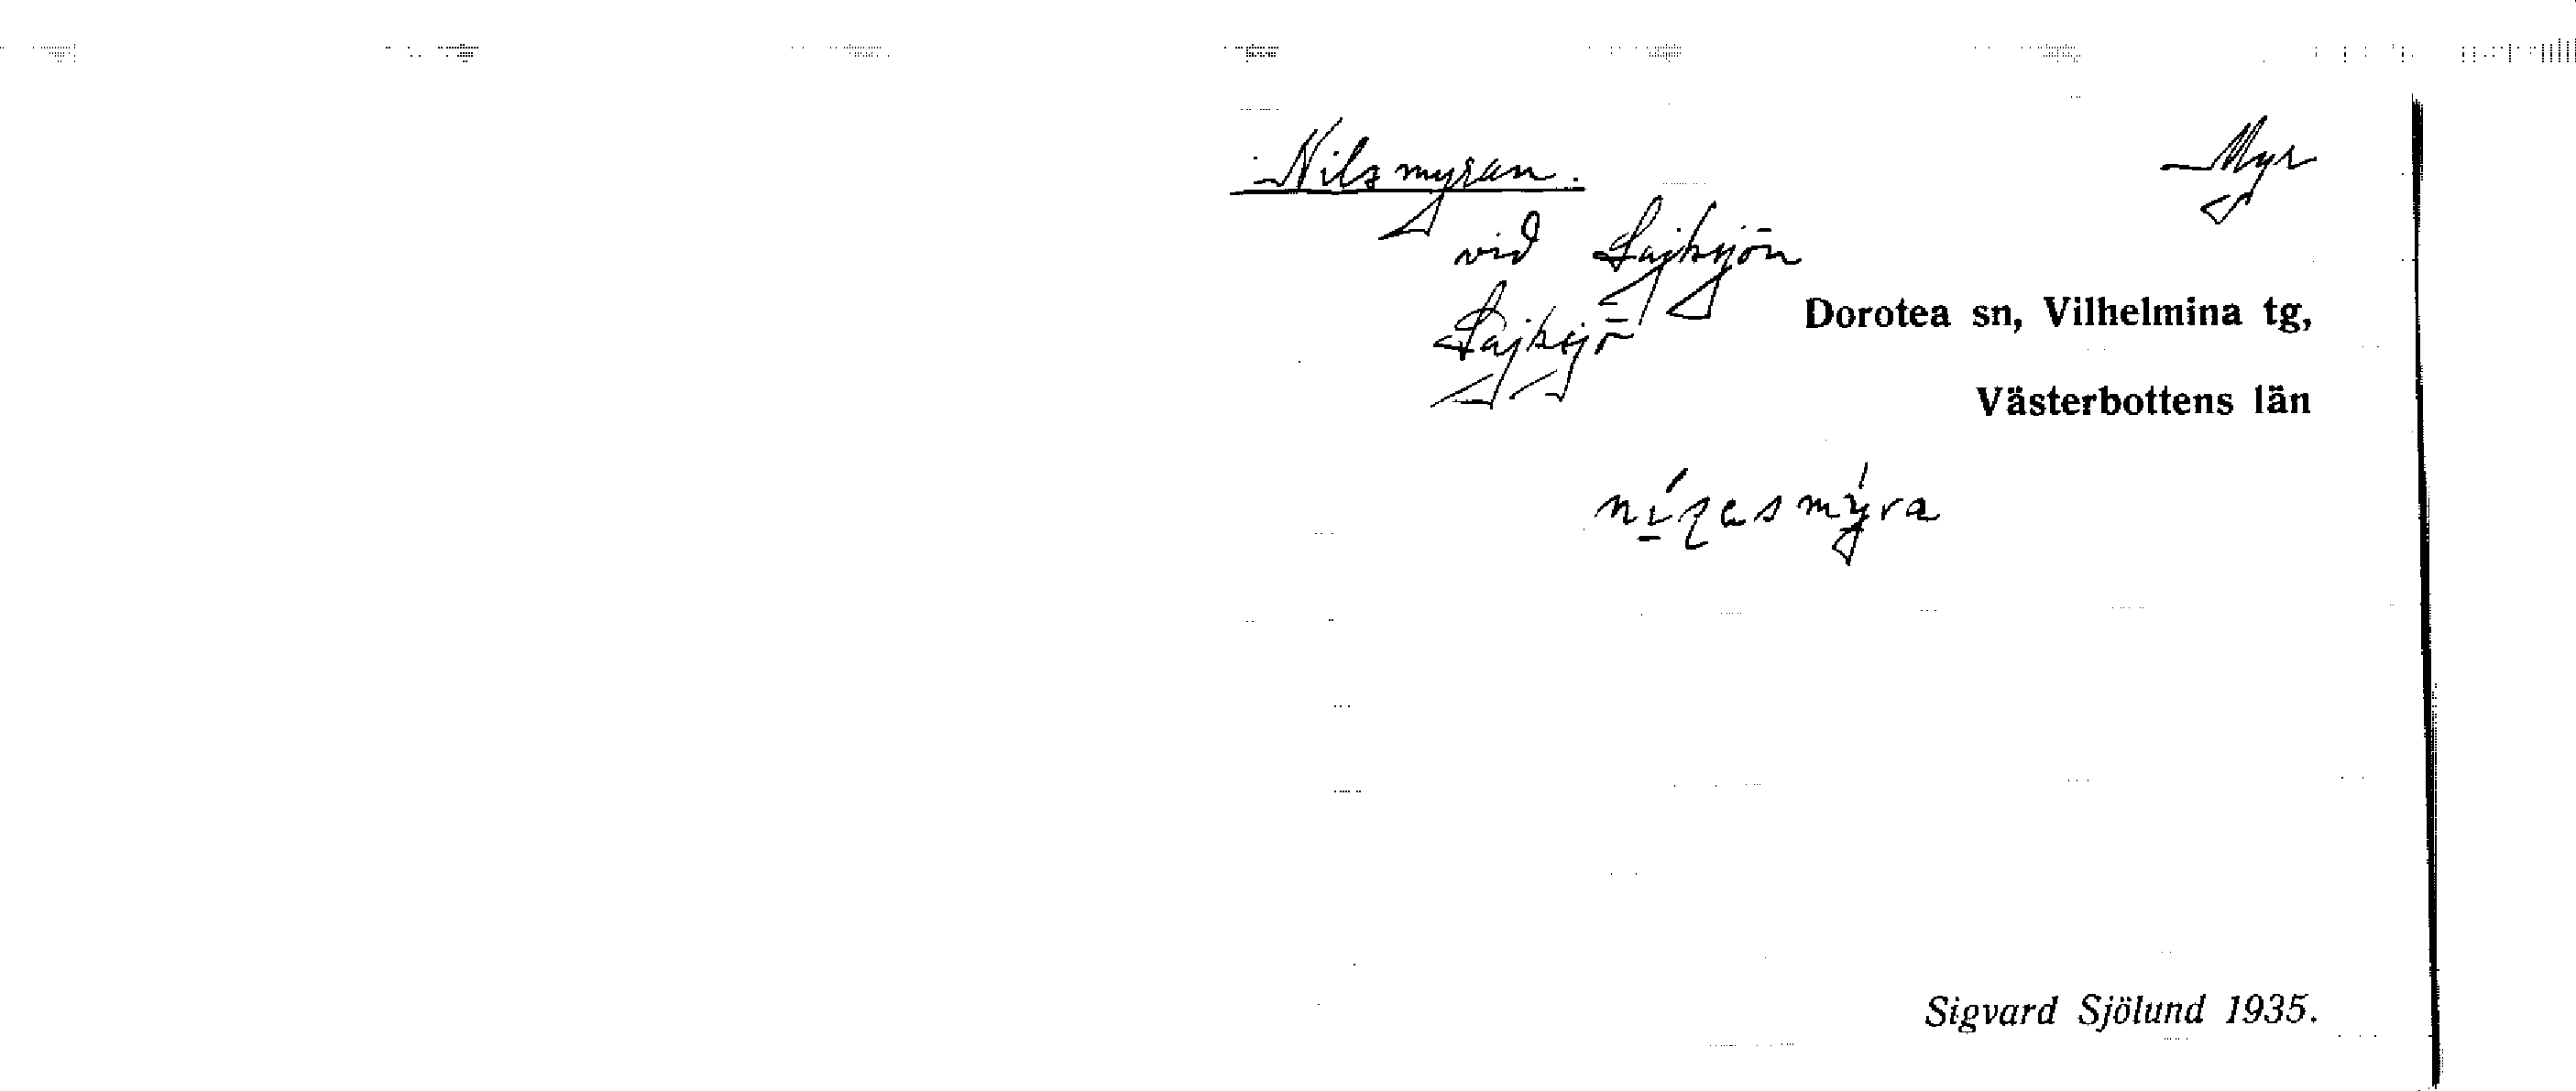 Nilsmyran. Myr
vid Lajksjön
Lajksjö Dorotea sn, Vilhelmina tg,
Västerbottens län
Sigvard Sjölund 1935.